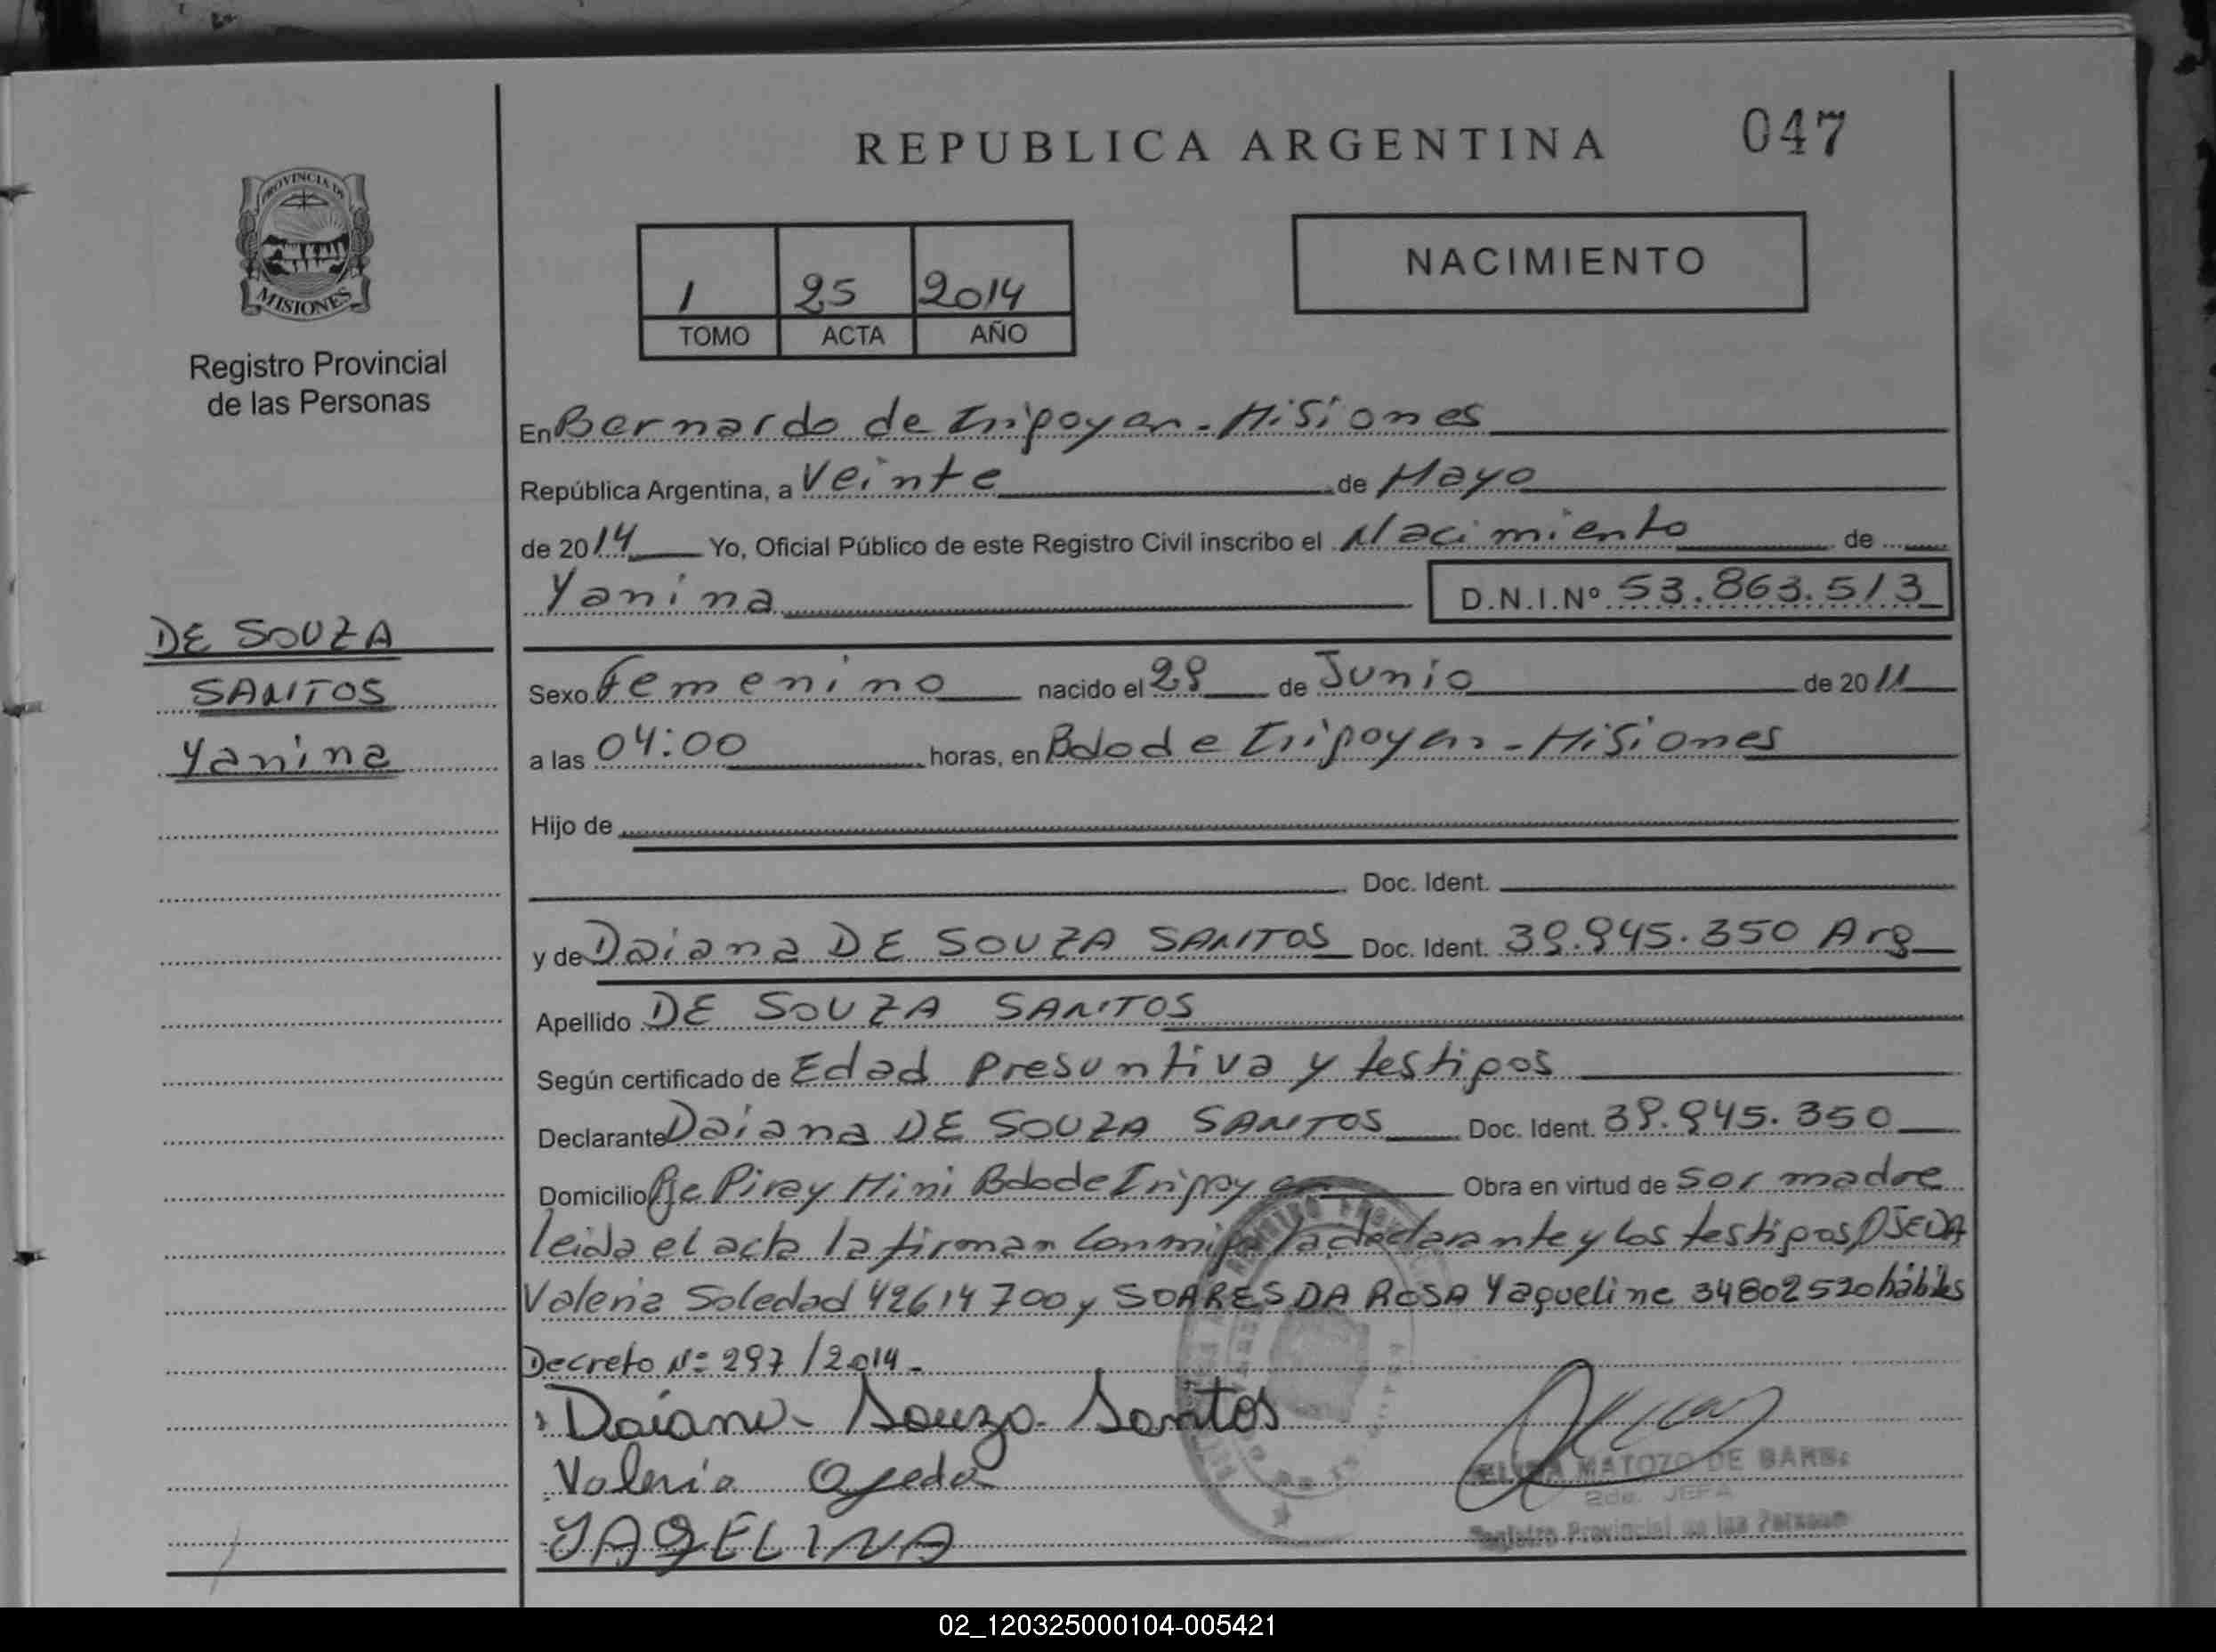 REPUBLICA ARGENTINA
047
PROVINCIA DE
MISIONES
Registro Provincial
de las Personas
NACIMIENTO
1 25 2014
TOMO ACTA AÑO
En Bernardo de Irigoyen - Misiones
República Argentina, a Veinte de Mayo
de 2014 Yo, Oficial Público de este Registro Civil inscribo el Nacimiento de
Yanina D.N.I.Nº 53.863.513
DE SOUZA
SANTOS
Yanina
Sexo Femenino nacido el 29 de Junio de 2011
a las 04:00 horas, en Bdo de Irigoyen - Misiones
Hijo de
Doc. Ident.
y de Daiana DE SOUZA SANTOS Doc. Ident. 39.945.350 Arg
Apellido DE SOUZA SANTOS
Según certificado de Edad Presuntiva y testigos
Declarante Daiana DE SOUZA SANTOS Doc. Ident. 39.945.350
Domicilio Pje Piray Mini Bdo de Irigoyen Obra en virtud de ser madre
leida el acta la firman conmigo la declarante y los testigos OJEDA
Valeria Soledad 42614700 y SOARES DA ROSA Yaqueline 34802520 hábiles
Decreto Nº 297/2014-
Daiana Souza Santos
Valeria Ojeda
YAQELINA
MATOZO DE BARB
2da. JEFA
Registro Provincial de las Personas
02_120325000104-005421